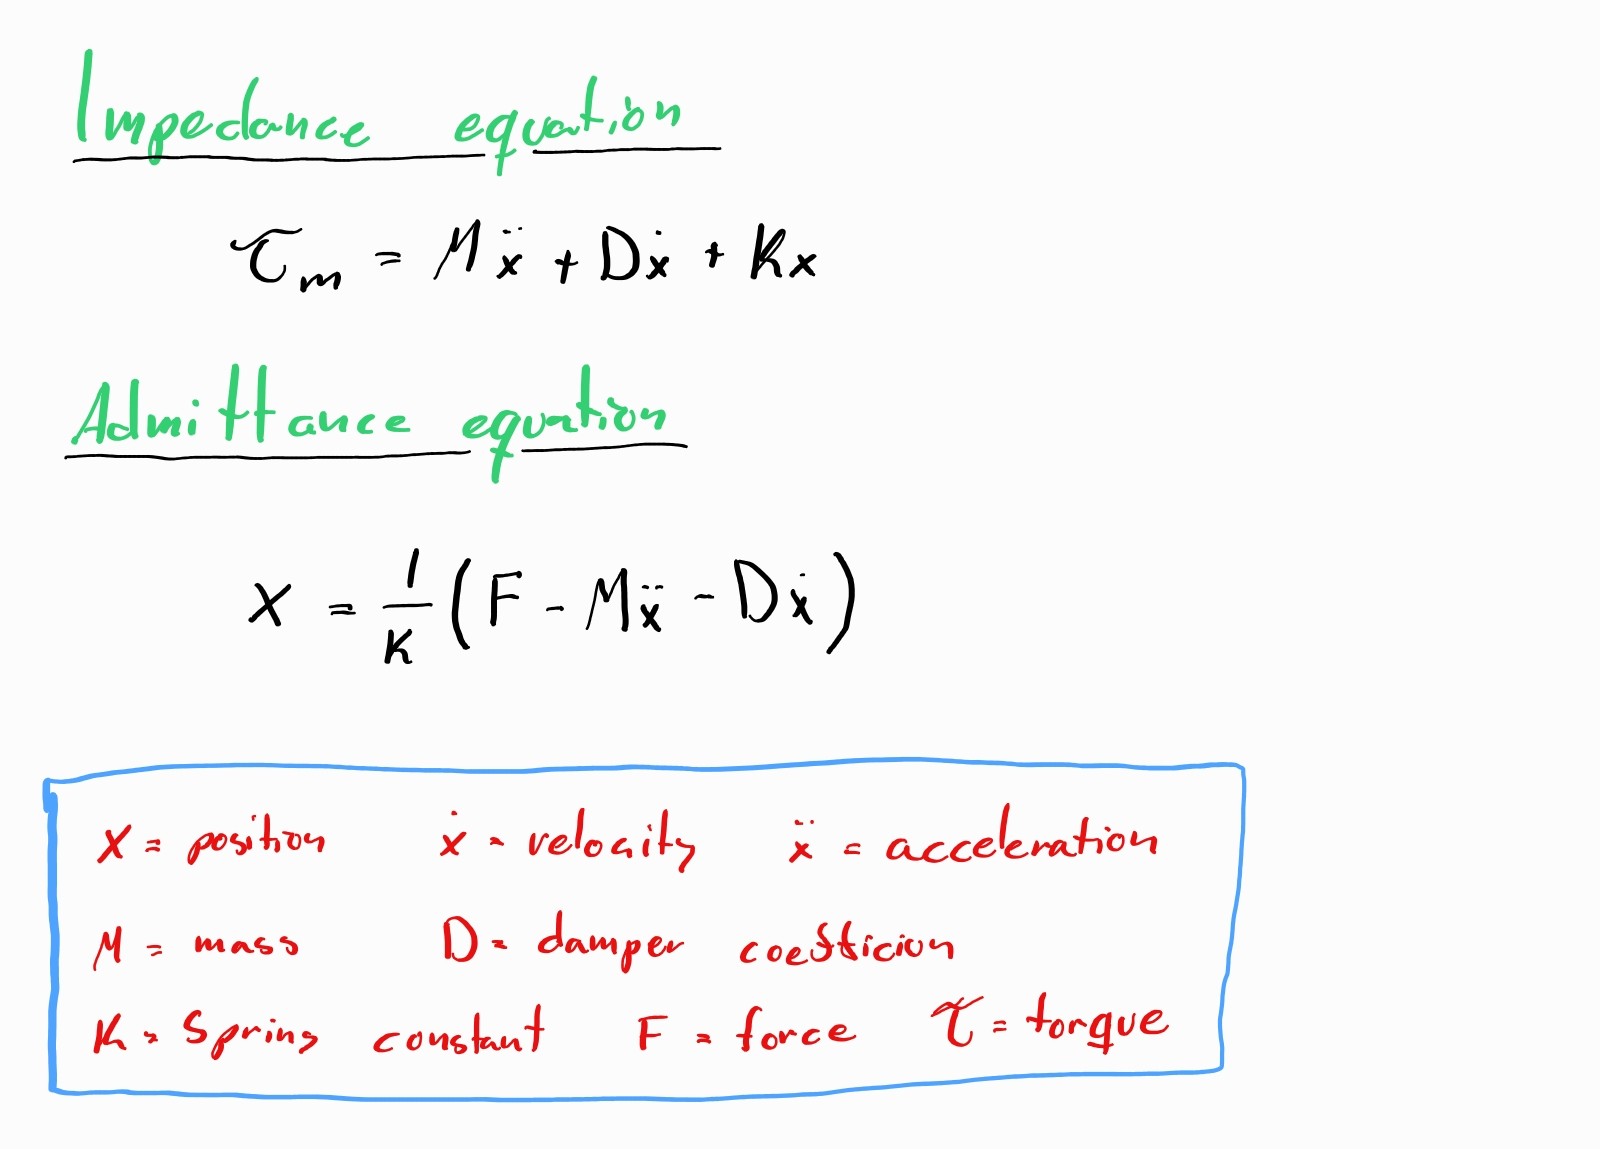 Impedance equation
τₘ = Mẍ + Dẋ + Kx
Admittance equation
X = 1/K (F - Mẍ - Dẋ)
X = position ẋ = velocity ẍ = acceleration
M = mass D = damper coefficion
K = Spring constant F = force τ = torque